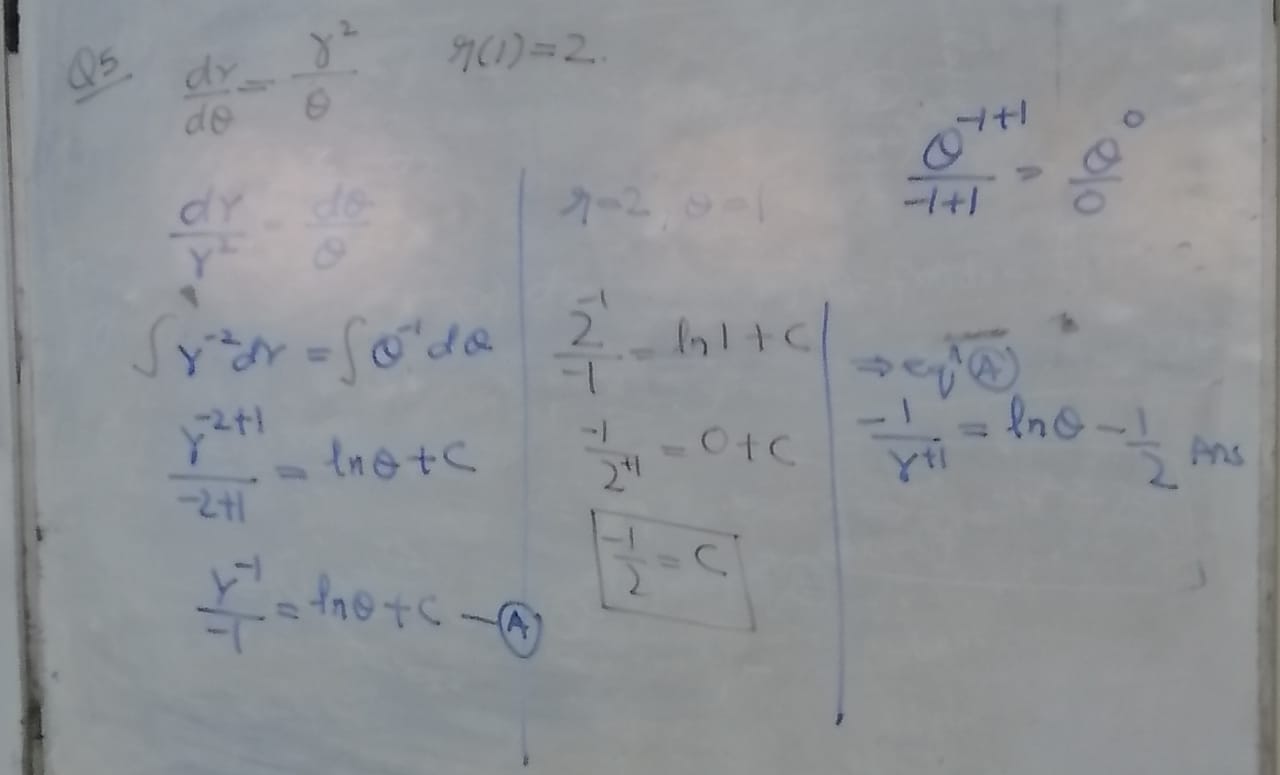 Q5 dr/dθ = r²/θ r(1)=2.
dr/r² = dθ/θ
∫r⁻²dr = ∫θ⁻¹dθ
r⁻²⁺¹/-2+1 = lnθ+C
r⁻¹/-1 = lnθ+C —Ⓐ
r=2, θ=1
2⁻¹/-1 = ln1+C
-1/2⁺¹ = 0+C
-1/2 = C
θ⁻¹⁺¹/-1+1 = θ⁰/0
⇒ eqⁿ Ⓐ
-1/r⁺¹ = lnθ - 1/2 Ans